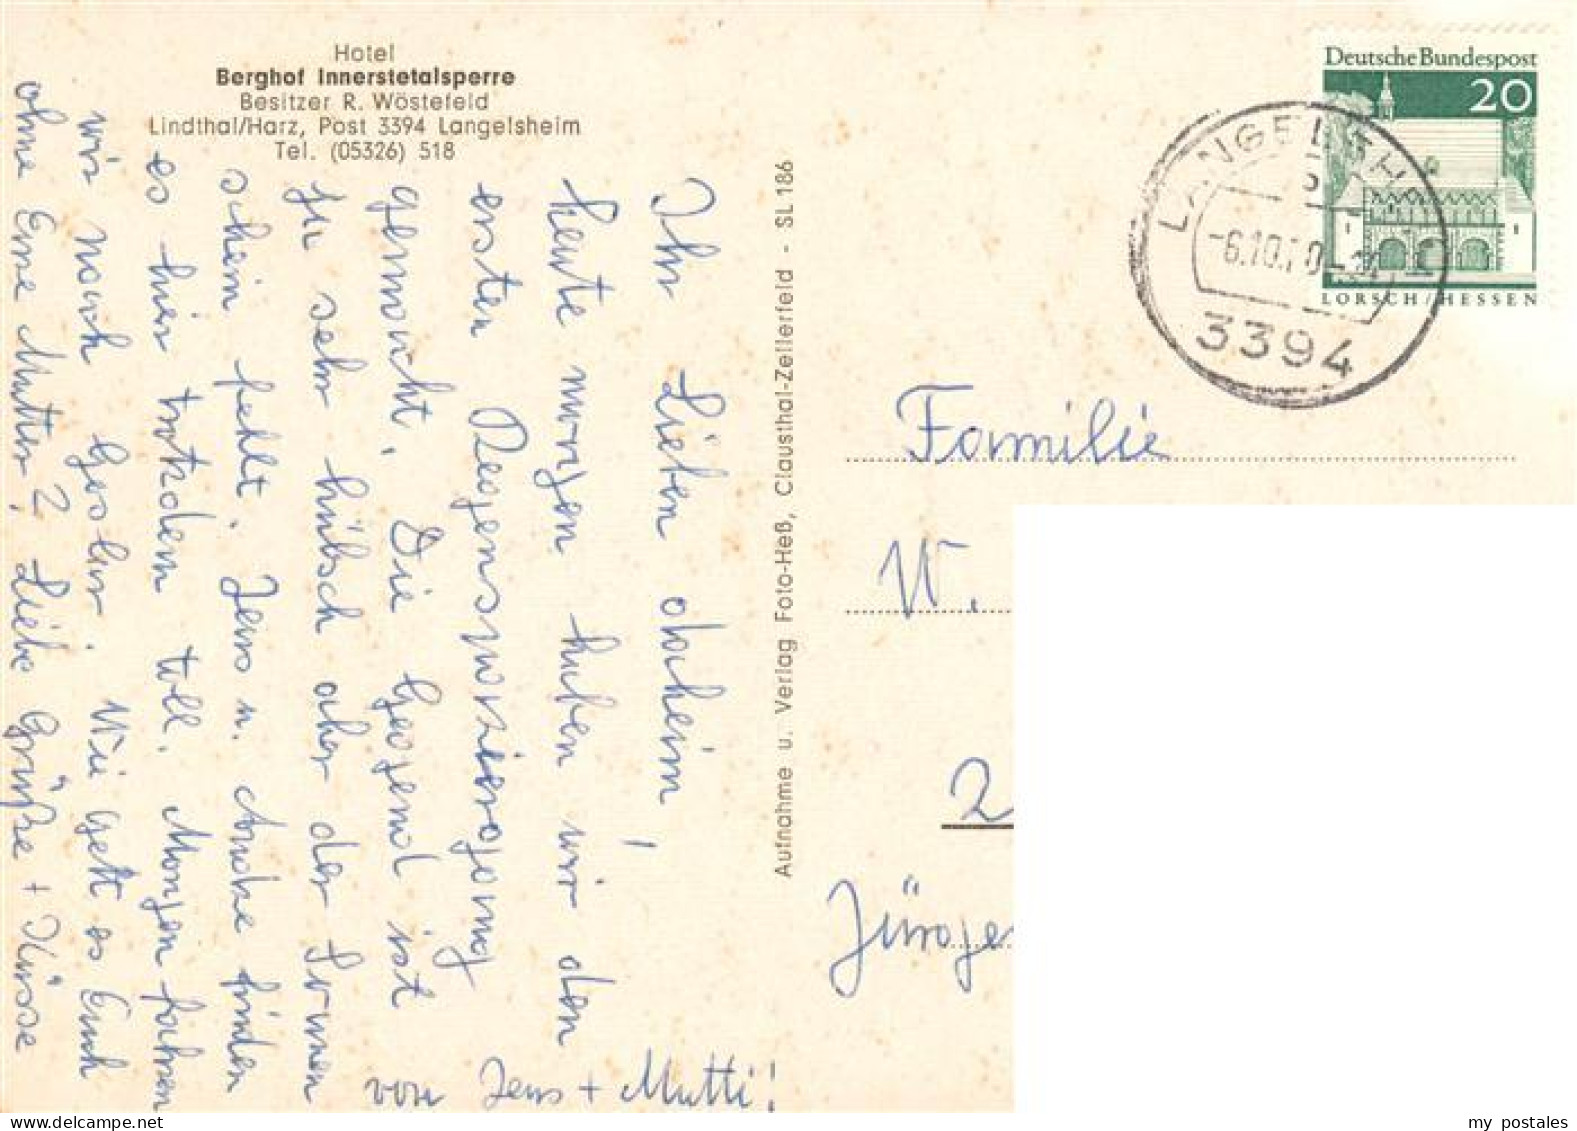 Hotel
Berghof Innerstetalsperre
Besitzer R. Wöstefeld
Lindthal/Harz, Post 3394 Langelsheim
Tel. (05326) 518
Ihr Lieben daheim!
heute morgen haben wir den
ersten Regenspaziergang
gemacht. Die Gegend ist
zu sehr hübsch aber der Sonnen
schein fehlt. Jens u. Anke finden
es hier trotzdem toll. Morgen fahren
wir nach Goslar. Wie geht es Euch
ohne Eure Mutter? Liebe Grüße + Küsse
von Jens + Mutti!
Aufnahme u. Verlag Foto-Heß, Clausthal-Zellerfeld - SL 186
Deutsche Bundespost
20
LORSCH/HESSEN
LANGELSHEIM
-6.10.
3394
Familie
W.
2
Jürgen
my postales